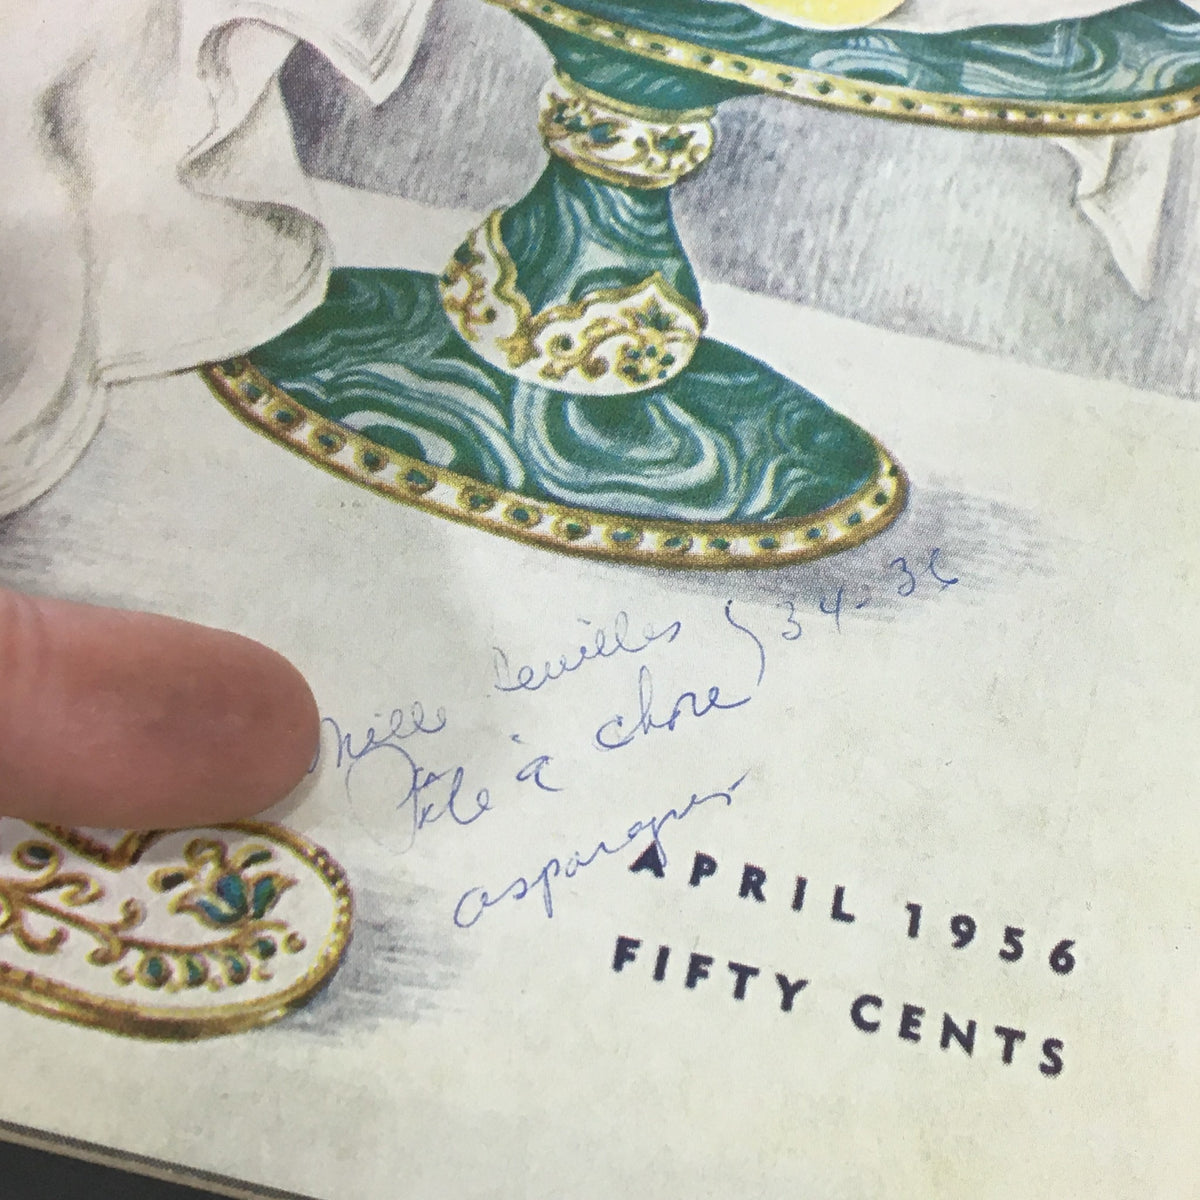 Mille feuilles } 34-36
Pâte à choue
asparagus
APRIL 1956
FIFTY CENTS